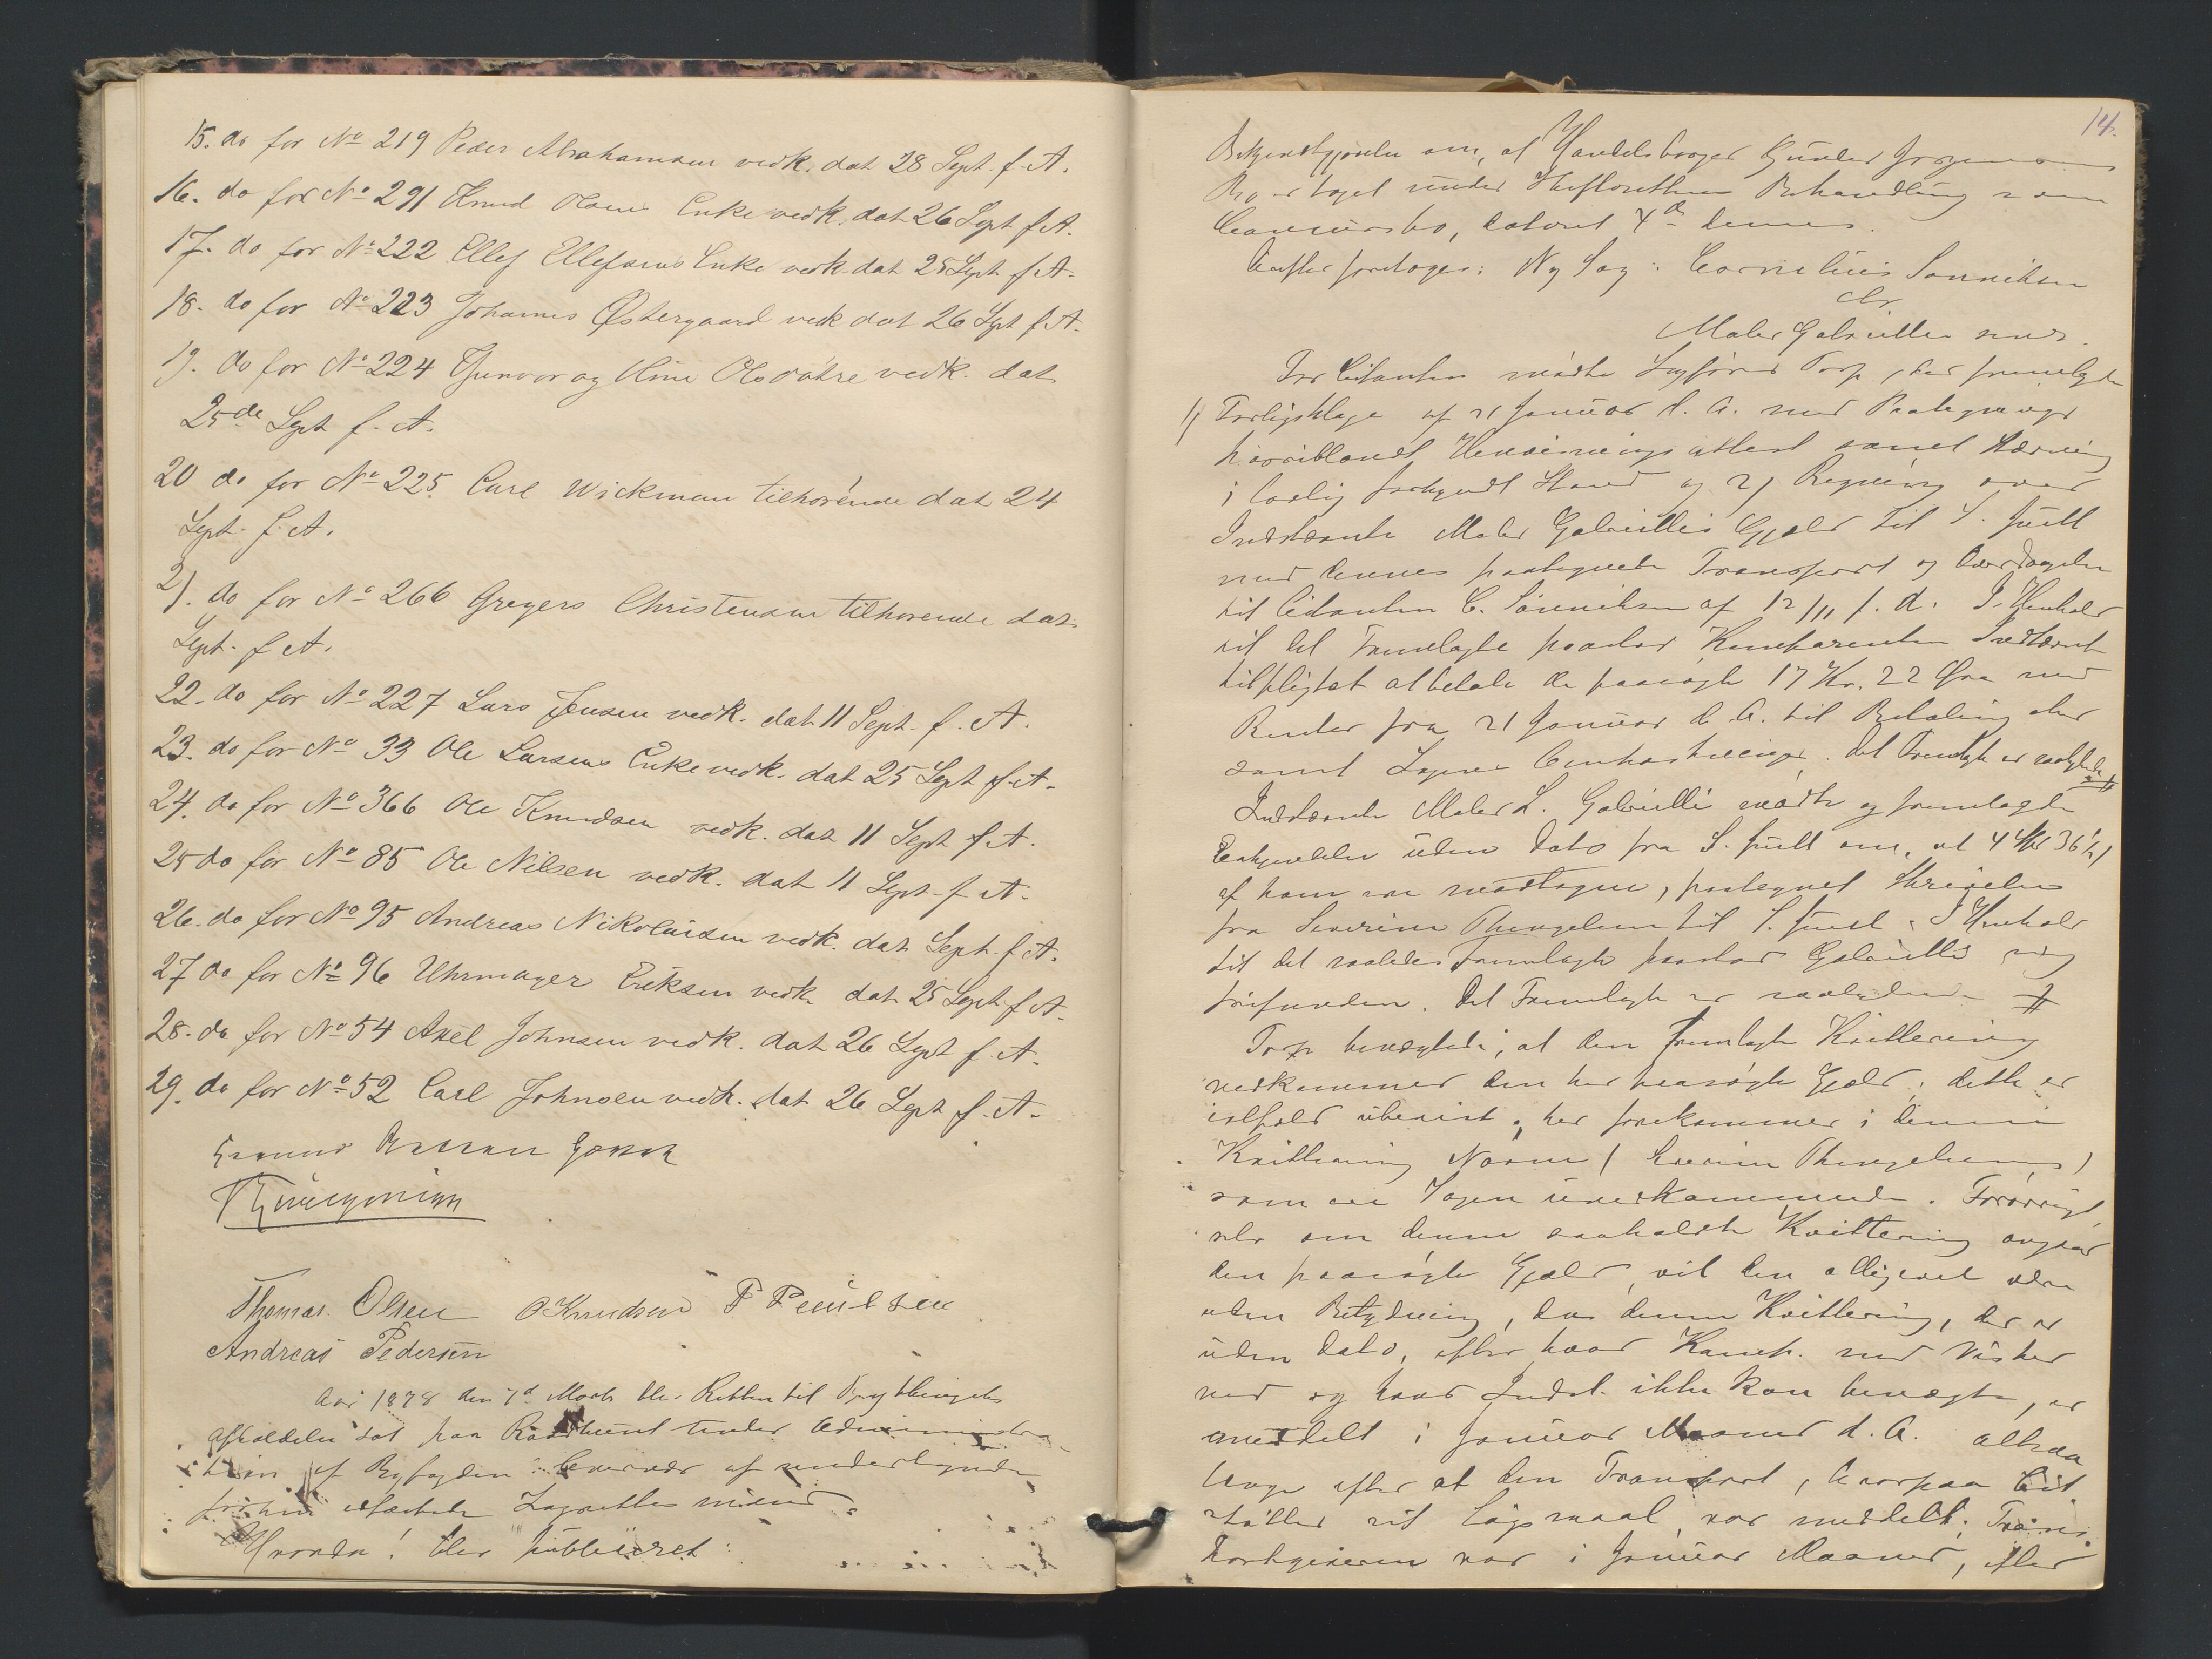 15. do for No 219 Peder Abrahamsen vedk. dat 28 Sept. f. A.
16. do for No 291 Knud Olsens Enke vedk. dat 26 Sept f. A.
17. do for No 222 Ellef Ellefsens Enke vedk. dat 25 Sept f. A.
18. do for No 223 Johannes Østergaard vedk dat 26 Sept f. A.
19. do for No 224 Gunvor og Oline Olsdøtre vedk. dat
25de Sept f. A.
20 do for No 225. Carl Wickman tilhørende dat 24
Sept. f. A.
21. do for No 266 Gregers Christensen tilhørende dat
Sept. f A.
22. do for No 227 Lars Jensen vedk. dat 11 Sept. f. A.
23. do for No 33 Ole Larsens Enke vedk. dat 25 Sept f. A.
24. do for No 366 Ole Knudsen vedk. dat 11 Sept f A.
25 do for No 85 Ole Nilsen vedk. dat 11 Sept. f A.
26. do for No 95 Andreas Nikolaisen vedk. dat Sept. f. A.
27 do for No 96 Uhrmager Eriksen vedk dat 25 Sept f A.
28. do for No 54 Axel Johnsen vedk. dat 26 Sept f. A.
29. do for No 52 Carl Johnsen vedk. dat 26 Sept f. A.
Thomas Olsen O Knudsen P Poulsen
Andreas Pedersen
Aar 1878 den 7d Marts blev Retten til Bythingets
Afholdelse sat paa Raadhuset under Administra-
tion af Byfogden i Overvær af underskrevne
Lagrettesmænd.
Hvorda! blev publiceret:
14.
Bekjendtgjørelse om, at Handelsborger Gunder Jørgensens
Bo er taget under Skifterettens Behandling som
Concursbo, dateret 4de dennes.
Derefter foretoges: Ny Sag: Cornelius Sønniksen
ctr.
Maler Gabrielli
For Citanten mødte Sagfører Torp, der fremlagde
1) Forligsklage af 21 Januar d. A. med Paategninger
hvoriblandt Henvisningsattest samt Stævning
i lovlig forkyndt Stand og 2) Regning over
Indstævnte Maler Gabriellis Gjæld til S. Juell
med dennes paategnede Transport og Overdragelse
til Citanten C. Sønniksen af 12/11 f. A. I Henhold
til det Fremlagte paastod Komparenten Indstævnte
tilpligtet at betale de paasøgte 17 Kr. 22 Øre med
Renter fra 21 Januar d. A. til Betaling sker
samt Sagens Omkostninger. Det Fremlagte er saalydende
Indstævnte Maler L. Gabrielli mødte og fremlagde
Erkjendelse uden Dato fra S. Juell om, at
af ham var modtagne, paategnet Skrivelse
fra Severine Thengelsen til S. Juell. I Henhold
til det saaledes Fremlagte paastod Gabrielli sig
frifunden. Det Fremlagte er saalydende
Torp benægtede, at den fremlagte Kvittering
vedkommer den her paasøgte Gjæld, dette er
ialfald ubevist, her forekommer i denne
Kvittering Navne
som ere Sagen uvedkommende. Forøvrigt,
selv om denne saakaldte Kvittering angaar
den paasøgte Gjæld, vil den alligevel være
uden Betydning, da denne Kvittering, der er
uden Dato, efter hvad Komp. med Vished
ved og hvad Indst. ikke kan benægte, er
meddelt i Januar Maaned d. A. altsaa
længe efter at den Transport, hvorpaa Cit
støtter sit Søgsmaal, var meddelt. Trans-
portgiveren var i Januar Maaned, efter